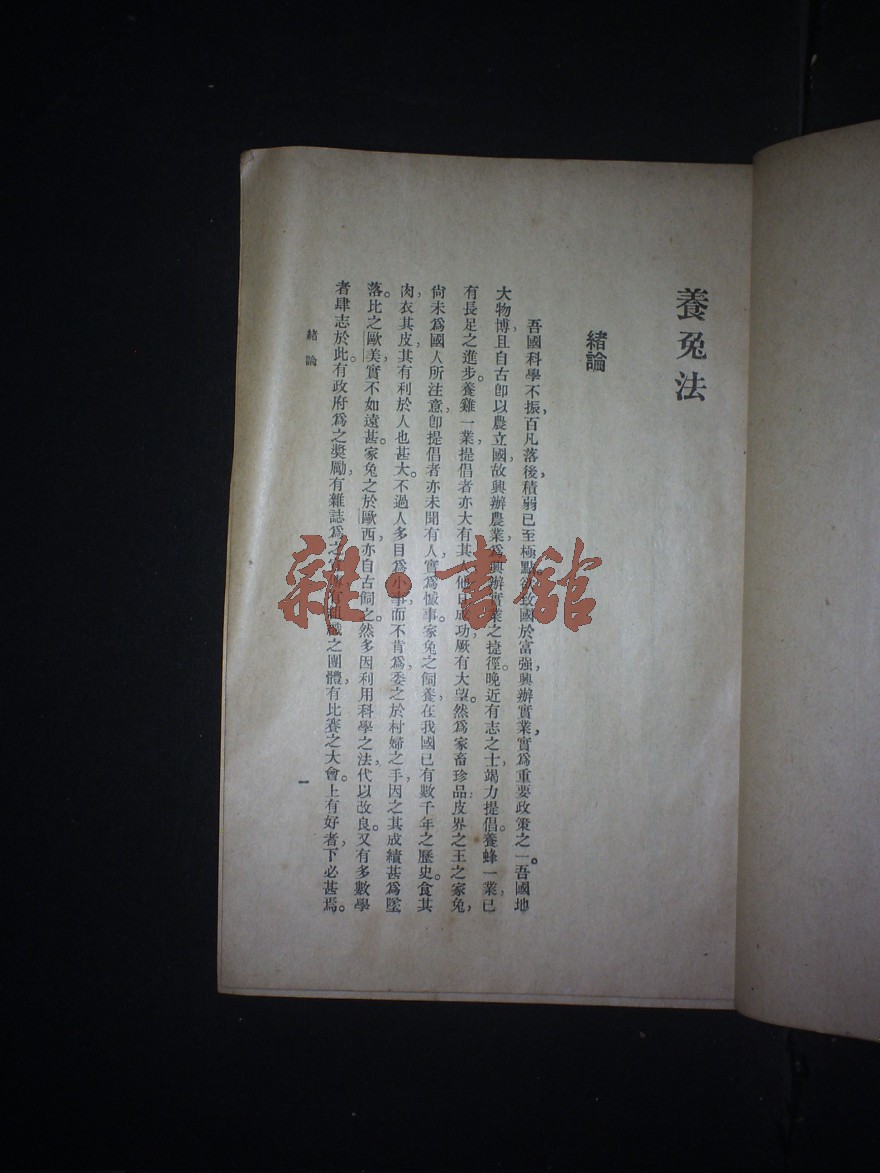 養兔法
緒論
吾國科學不振，百凡落後，積弱已至極點。欲致國於富强，興辦實業，實爲重要政策之一。吾國地
大物博，且自古卽以農立國，故興辦農業，爲興辦實業之捷徑。晚近有志之士，竭力提倡。養蜂一業，已
有長足之進步。養雞一業，提倡者亦大有其人，他日成功，厥有大望。然爲家畜珍品，皮界之王之家兔，
尙未爲國人所注意，卽提倡者亦未聞有人，實爲憾事。家兔之飼養，在我國已有數千年之歷史。食其
肉，衣其皮，其有利於人也甚大。不過人多目爲小事，而不肯爲，委之於村婦之手，因之其成績甚爲墜
落。比之歐美，實不如遠甚。家兔之於歐西，亦自古飼之。然多因利用科學之法，代以改良。又有多數學
者肆志於此。有政府爲之奬勵，有雜誌爲之有組織之團體，有比賽之大會。上有好者，下必甚焉。
緒論
一
雜·書舘